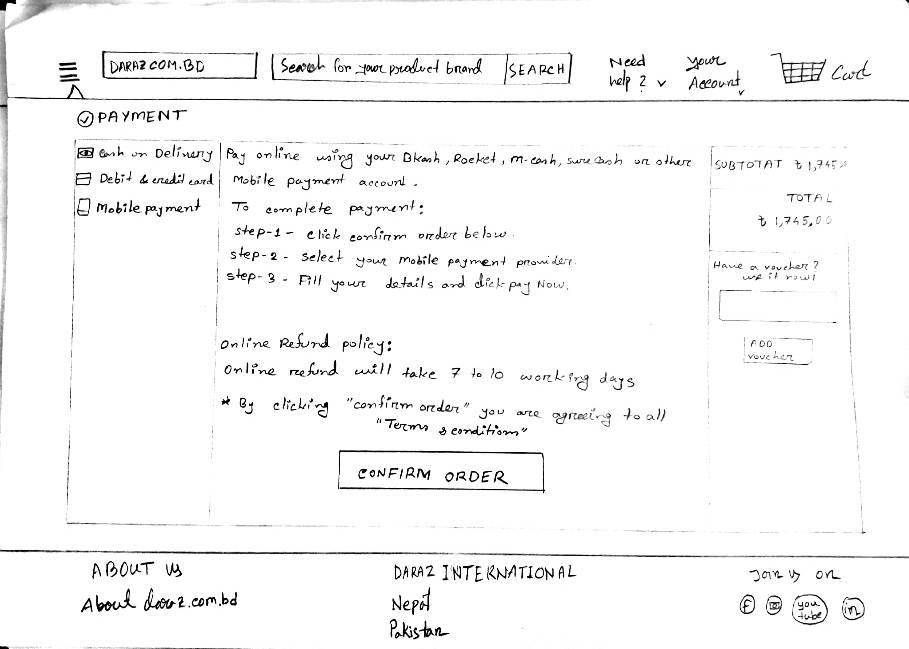 DARAZ.COM.BD
Search for your product brand
SEARCH
Need help ? v
Your Account v
Cart
PAYMENT
Cash on Delivery
Debit & credit card
Mobile payment
Pay online using your Bkash, Rocket, M-cash, sure cash or other
Mobile payment account.
To complete payment:
step-1 - click confirm order below.
step-2 - select your mobile payment provider.
step-3 - Fill your details and click pay Now.
Online Refund policy:
Online refund will take 7 to 10 working days
* By clicking "confirm order" you are agreeing to all
"Terms & conditions"
CONFIRM ORDER
SUBTOTAT ৳ 1,745
TOTAL
৳ 1,745,00
Have a voucher ?
use it now!
ADD
voucher
ABOUT US
About daraz.com.bd
DARAZ INTERNATIONAL
Nepal
Pakistan
Join us on
f
you
tube
in